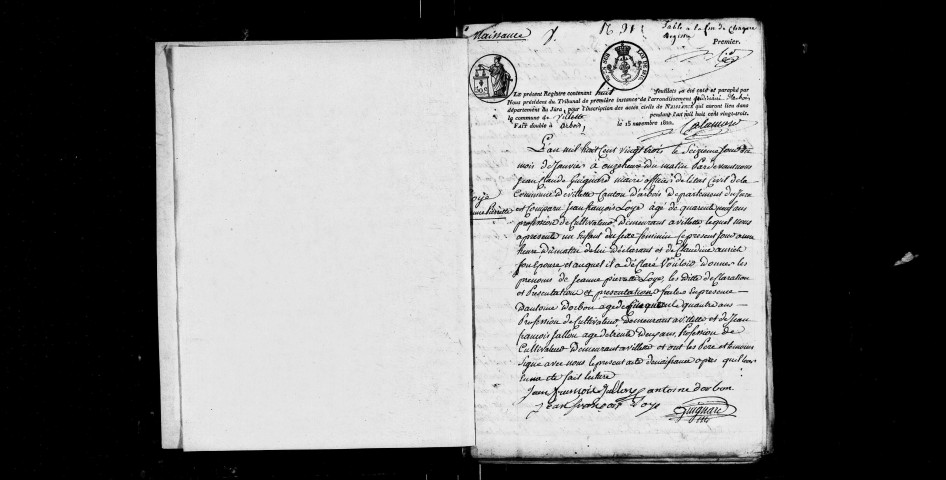 Naissance
Table a la fin de chaque
Registre
Premier.
Le présent Registre contenant huit feuillets a été coté et paraphé par
Nous président du Tribunal de première instance de l'arrondissement
département du Jura, pour l'inscription des actes civils de Naissance qui auront lieu dans
la commune de Villette pendant l'an mil huit cent vingt-trois.
Fait double à Arbois le 15 novembre 1822.
L'an mil huit Cent vingt trois le Seizieme Jour du
mois de Janvier à onze heure du matin Pardevant nous
Jean Claude Guignard maire officier de l'état Civil de la
Commune de villette Canton d'arbois Departement du Jura
est Comparu Jean françois Loye agé de quarente ans
profession de Cultivateur demeurant a villette lequel nous
a presenté un Enfant du sexe feminin Ce present Jour a une
heure du matin de lui declarant et de Claudine
son Epouse et auquel il a déclaré Vouloir donner les
prenoms de Jeanne pierrette Loye, les ditte declaration
et Presentation et presentation faites En presence
D'antoine d'arbon agé de Cinquante quattre ans
Profession de Cultivateur Demeurant a villette et de Jean
françois Jallon agé de trente Deux ans, Profession de
Cultivateur Demeurant a villette et ont les Pere et temoins
Signé avec nous le present acte de naissance apres qu'il leur
En a été fait lecture
Loye
Jeanne Pierrette
Jean françois Jallon antoine darbon
Jean françois Loye
Guignard